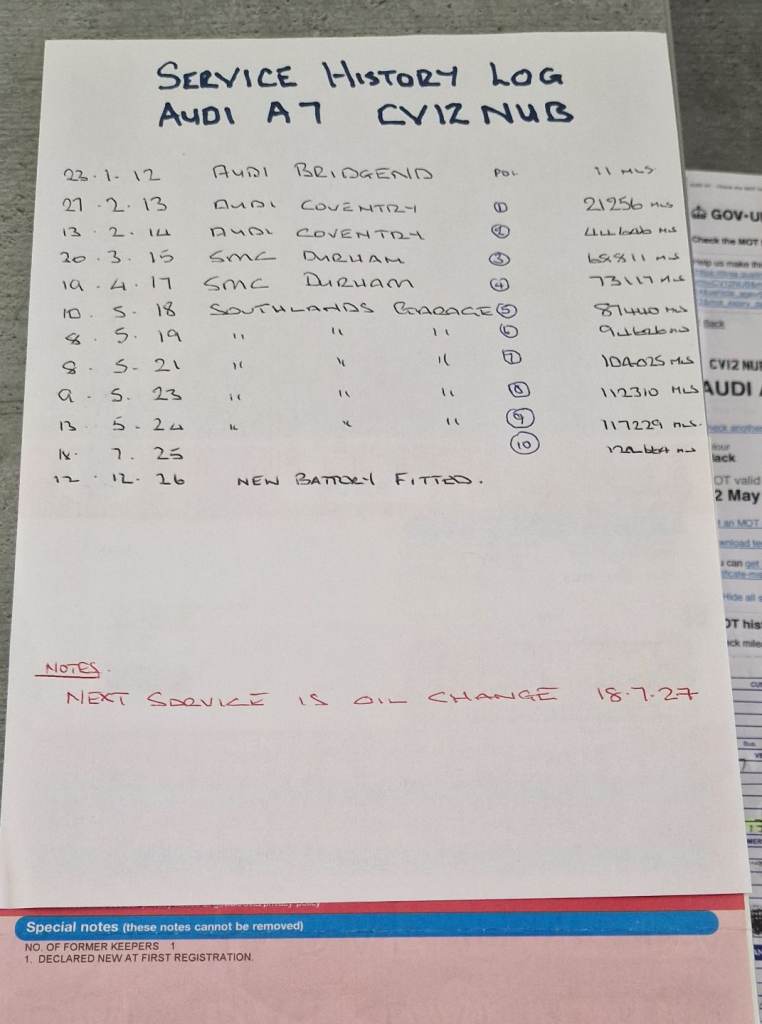 SERVICE HISTORY LOG
AUDI A7 CV12 NUB
23.1.12 AUDI BRIDGEND PDI 11 MLS
27.2.13 AUDI COVENTRY 1 21256 MLS
13.2.14 AUDI COVENTRY 2 MLS
20.3.15 SMC DURHAM 3 MLS
19.4.17 SMC DURHAM 4 73117 MLS
10.5.18 SOUTHLANDS GARAGE 5 87440 MLS
8.5.19 " " " 6
8.5.21 " " " 7 104025 MLS
9.5.23 " " " 8 112310 MLS
13.5.24 " " " 9 117229 MLS.
7.25 10 MLS
12.12.26 NEW BATTERY FITTED.
NOTES.
NEXT SERVICE IS OIL CHANGE 18.7.27
Special notes (these notes cannot be removed)
NO. OF FORMER KEEPERS 1
1. DECLARED NEW AT FIRST REGISTRATION.
GOV.U
Check the MOT
Back
CV12 NU
AUDI
lack
OT valid
2 May
an MOT
can get
Hide all
OT his
ck mile